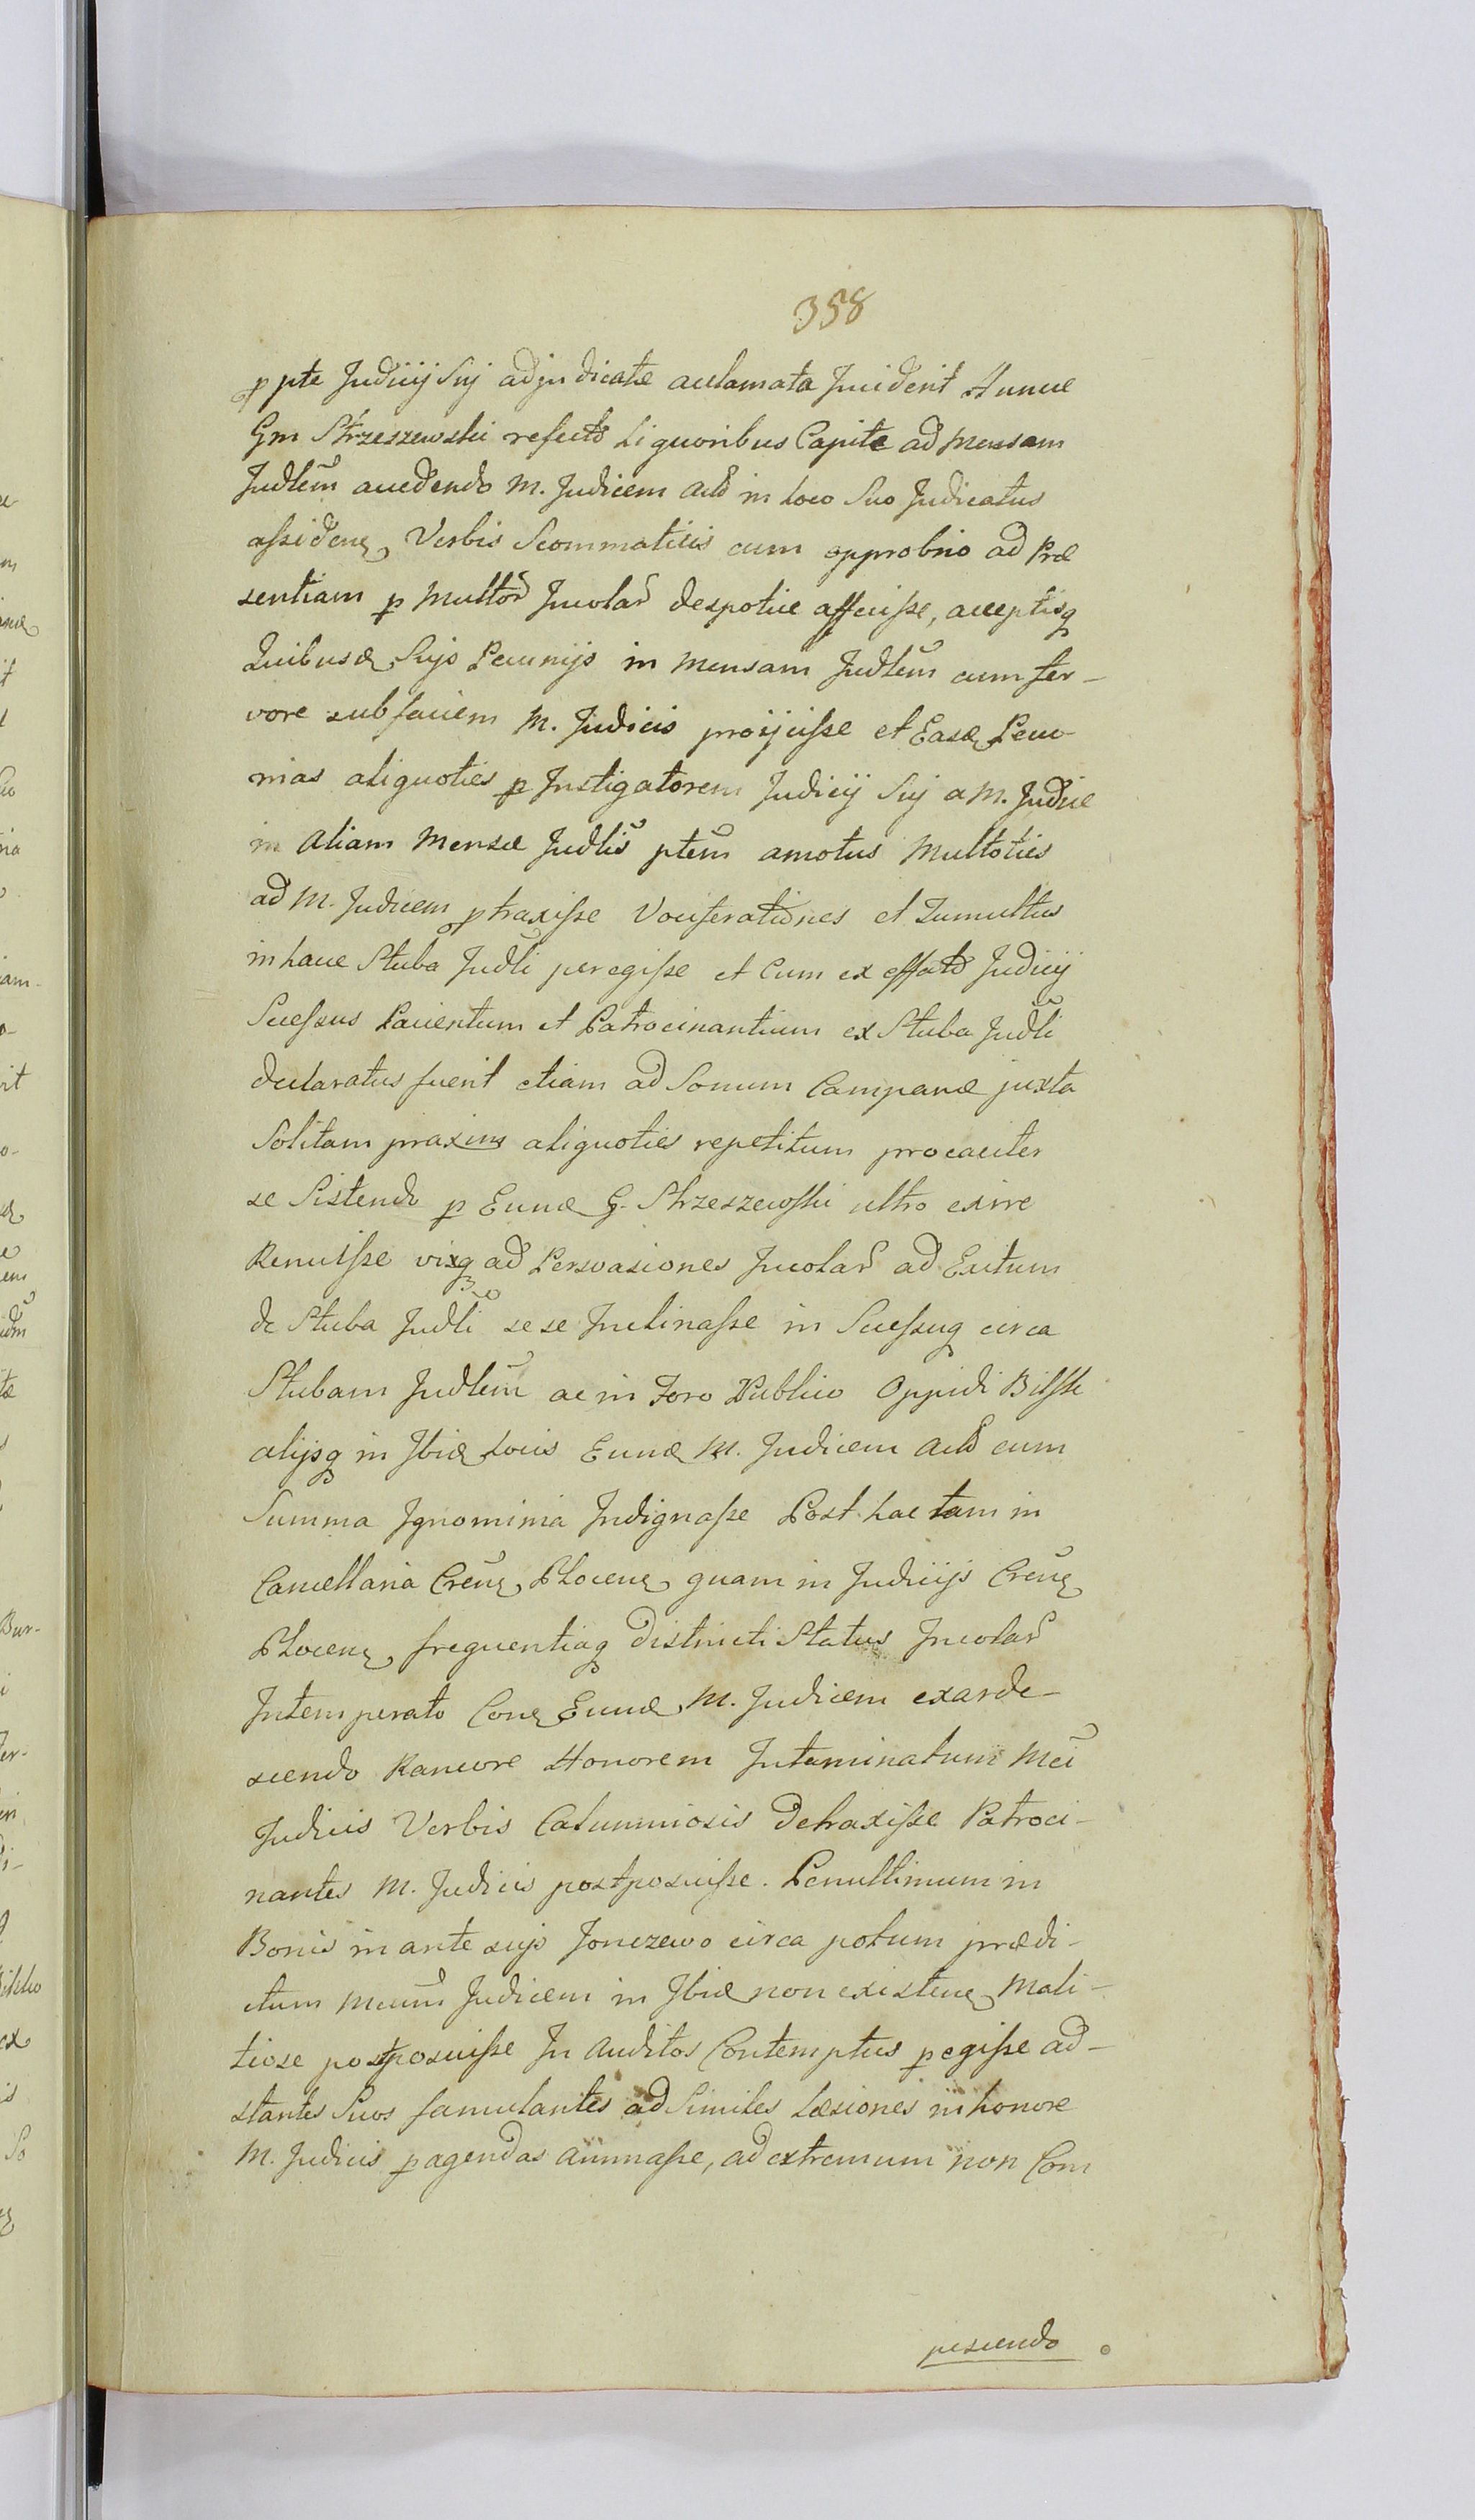 358
p pte Judicij Suj adjudicatæ acclamata Inciderit Hunce
Gm Strzeszewski refecto Liquoribus Capite ad Mensam
Judlem accedendo M. Judicem acto in Loco Suo Judicatus
assidenɡ Verbis Scommaticis cum opprobrio ad Præ
sentiam p Multor Incolar despotice affecisse, acceptisq
Quibusɡ Sujs Pecunijs in Mensam Judlem cum fer-
vore sub faciem M. Judicis proijcisse et Easɡ Pecu-
nias aliquoties p Instigatorem Judicij Suj a M. Judice
in Aliam Mensæ Judlis ptem amotas Multoties
ad M. Judicem ptraxisse Vociferationes et Tumultus
in hace Stuba Judli peregisse et Cum ex effato Judicij
Secessus Pacientum et Patrocinantium ex Stuba Judli
declaratus fuerit etiam ad Sonum Campanæ juxta
Solitam praxim aliquoties repetitum procaciter
se Sistendo p Eunɡ G. Strzeszewski ultro exire
Renuisse vixq ad Persvasiones Incolar ad Exitum
de Stuba Judli sese Inclinasse in Secessuq circa
Stubam Judlem ac in Foro Publico Oppidi Bilsk
alijsq in Ibiɡ Locis Eunɡ M. Judicem acto cum
Summa Ignominia Indignasse Post hac tam in
Cancellaria Crenɡ Plocenɡ quam in Judicijs Crenɡ
Plocenɡ frequentiaq Districti Status Incolar
Intemperato Conɡ Eunɡ M. Judicem exarde-
scendo Rancore Honorem Intaminatum Mci
Judicis Verbis Calumniosis Detraxisse Patroci-
nantes M. Judicis postposuisse. Penultimum in
Bonis in ante sujs Jonczewo circa potum prædi-
ctum Mcum Judicem in Ibiɡ non existenɡ Mali-
tiose postposuisse In Auditos Contemptus pegisse ad-
stantes Suos famulantes ad Similes Læsiones in honore
M. Judicis pagendas animasse, ad extremum non Com
pescendo